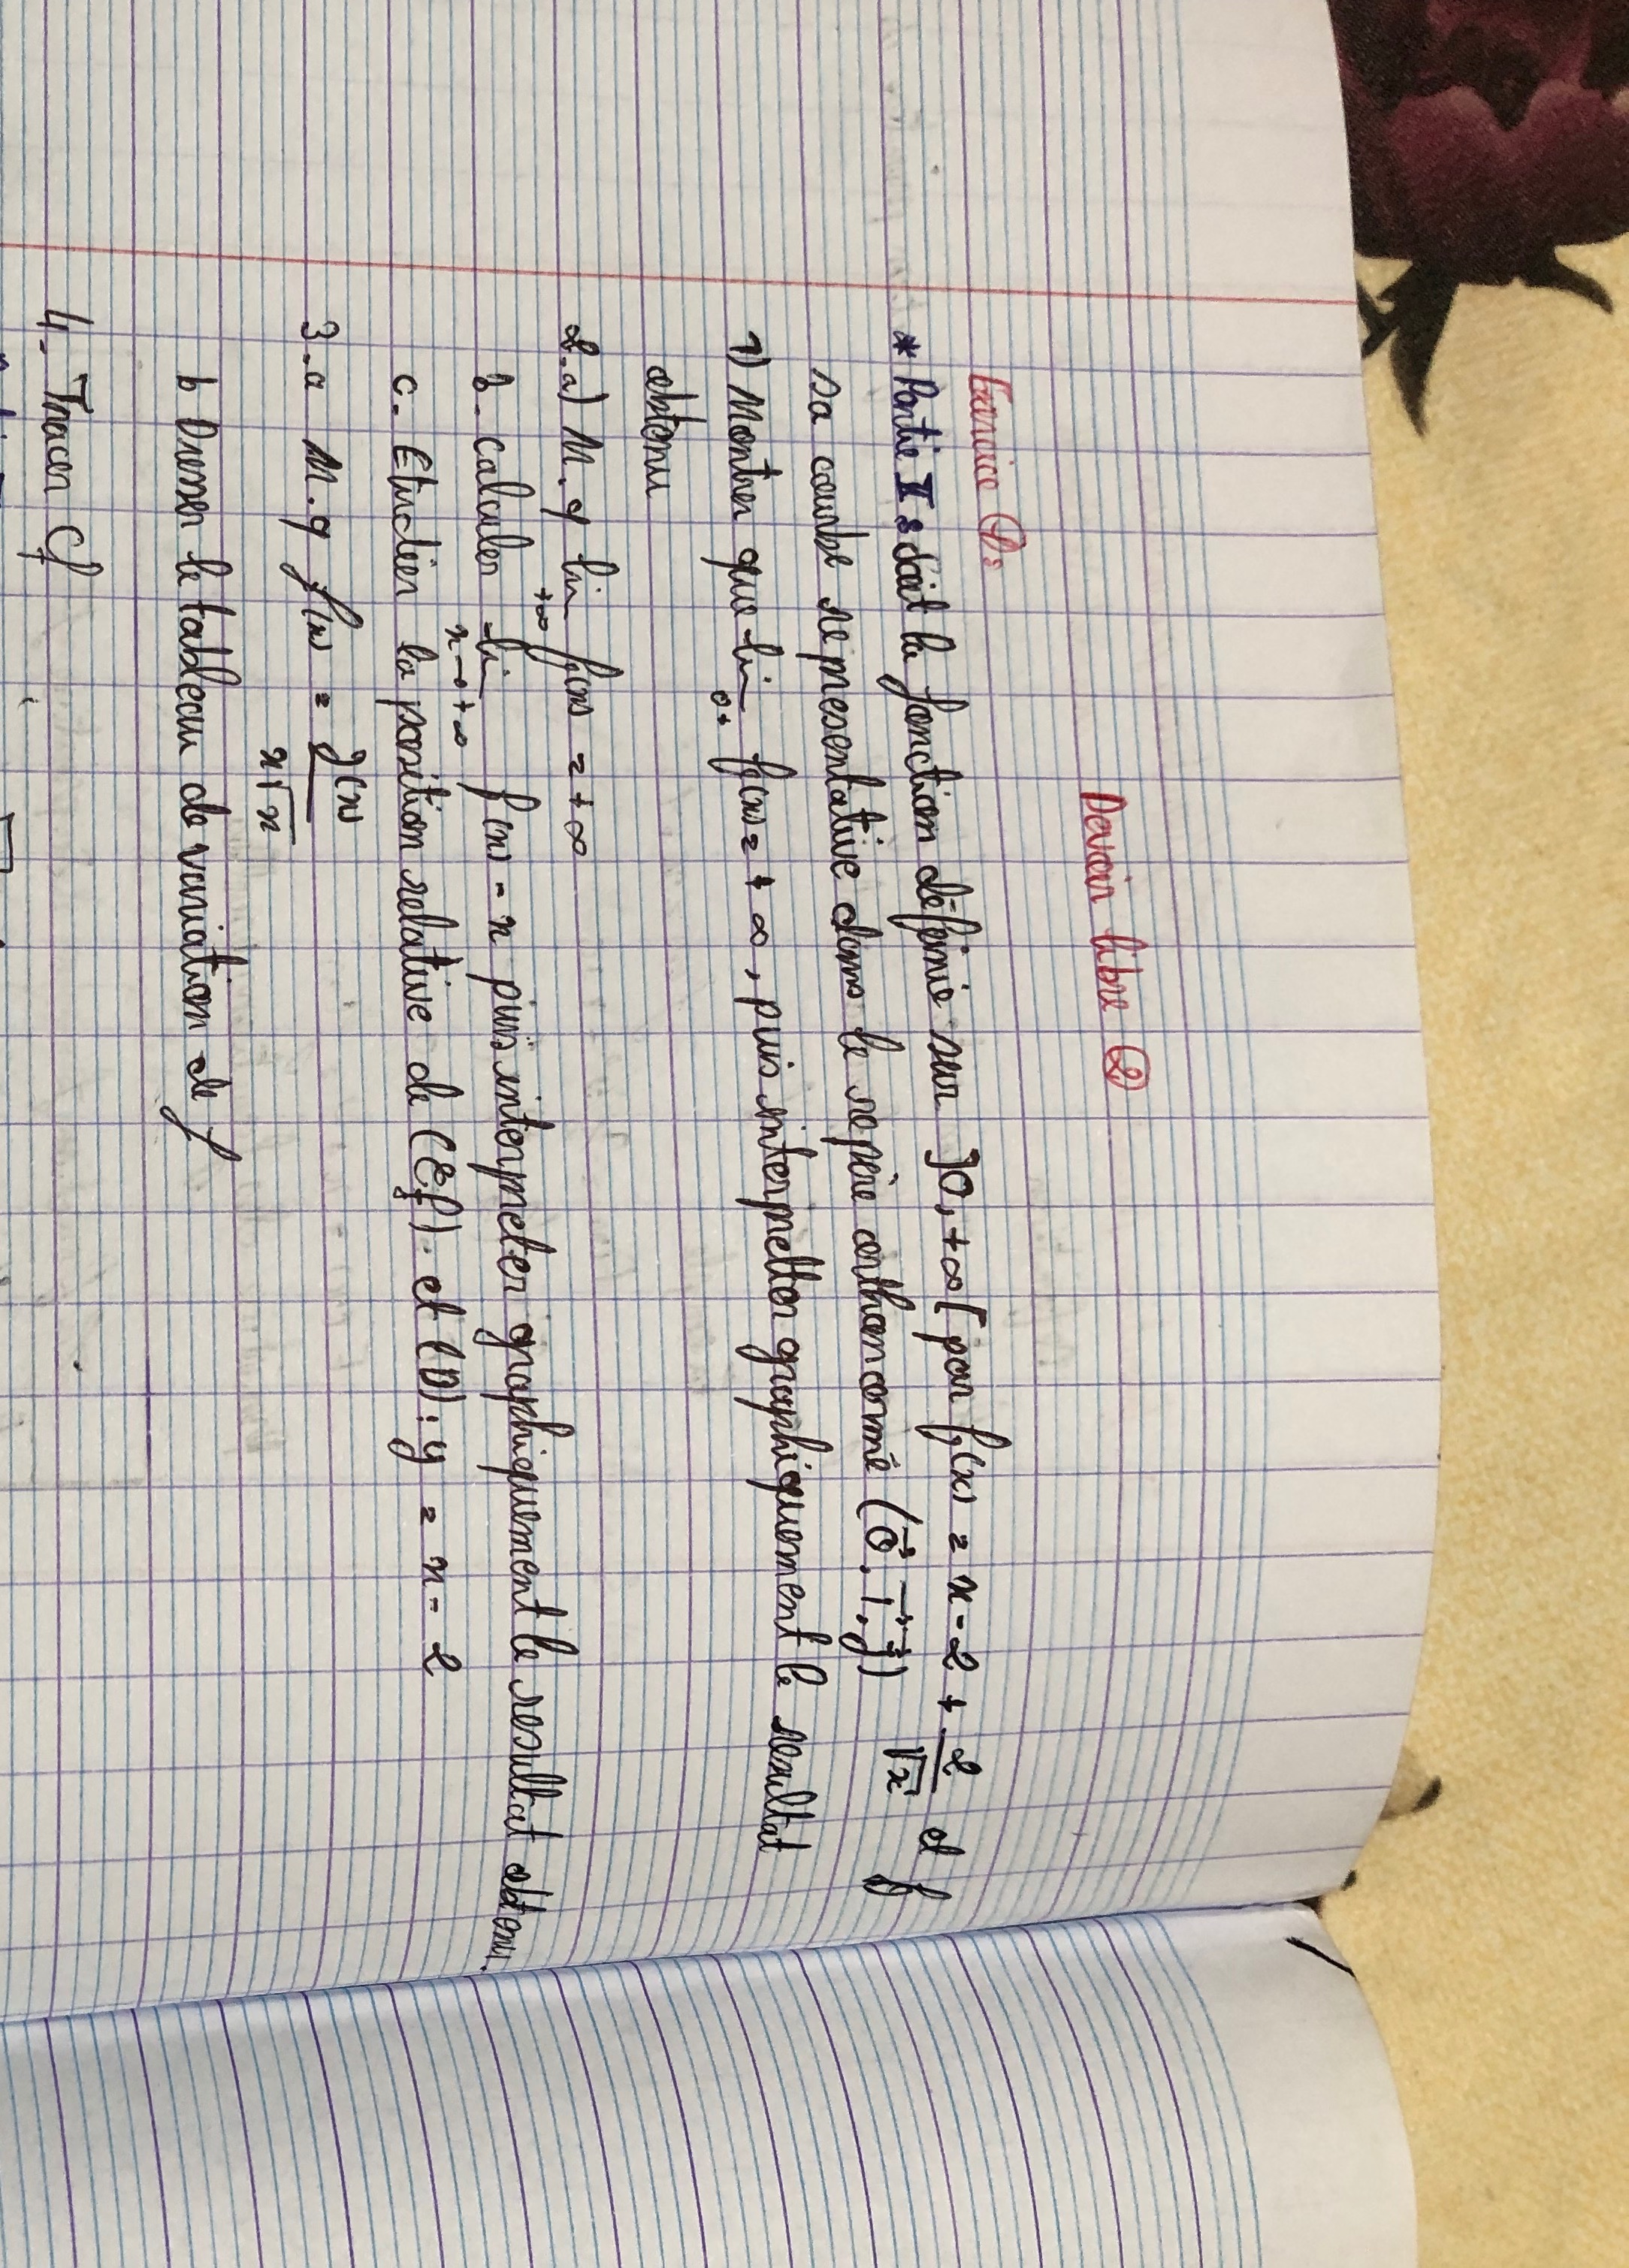 Devoir libre ②
Exercice ① :
* Partie I : Soit la fonction définie sur ]0, +∞[ par f(x) = x - 2 + 2/√x et f
sa courbe représentative dans le repère orthonormé (O, i, j)
1) Montrer que lim 0+ f(x) = +∞, puis interpretter graphiquement le resultat
obtenu
2. a) M. q lim +∞ f(x) = +∞
b - calculer lim x→+∞ f(x) - x puis interpreter graphiquement le resultat obtenu.
c. Etudier la position relative de (Cf) et (D) : y = x - 2
3 - a M. q f(x) = g(x)/x√x
b Dresser le tableau de variation de f
4 - Tracer Cf